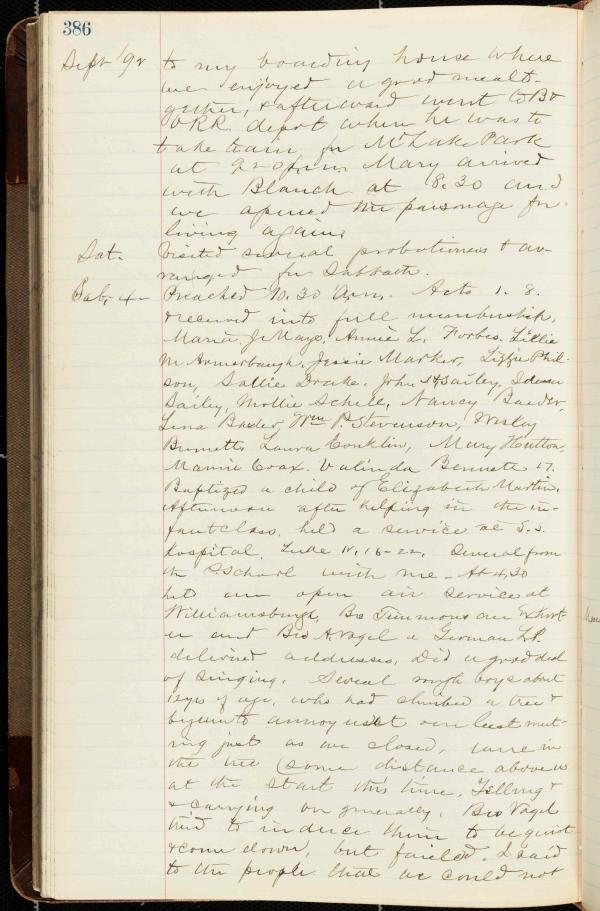 386
Sept /92 to my boarding house where
we enjoyed a good meal to-
gether, & afterward went to B &
O RR. depot where he was to
take train for Mt Lake Park
at 2.20 p.m. Mary arrived
with Blanch at 8.30 and
we opened the parsonage for
living again.
Sat. Visited several probationers & ar-
ranged for Sabbath.
Sab. 4 - Preached 10.30 a.m. Acts 1. 8.
& received into full membership,
Maria J. Mayo, Annie L. Forbes, Lillie
M Armerbaugh, Jessie Marker, Lizzie Phil-
son, Sallie Drake, John H Sailey,
Sailey, Mollie Schell, Nancy Baeder,
Lena Baeder, Wm P. Stevenson, Wesley
Burnett, Laura Conklin, Mary Hutton,
Mamie Coax. Valinda Bennett 17.
Baptized a child of Elizabeth Martin.
Afternoon after helping in the in-
fant class, held a service at S.S.
Hospital. Luke 18-22. Several from
the S. School with me - At 4.30
held an open air service at
Williamsburgh, Bro Timmons an Exhort-
er and Bro A. Vogel a German L.P.
delivered addresses. Did a good deal
of singing. Several rough boys about
12 yrs of age, who had climbed a tree &
begun to annoy us at our last meet-
ing just as we closed, were in
the tree (some distance above us
at the start this time. Yelling &
& carrying on generally. Bro Vogel
tried to induce them to be quiet
& come down, but failed. I said
to the people that we could not